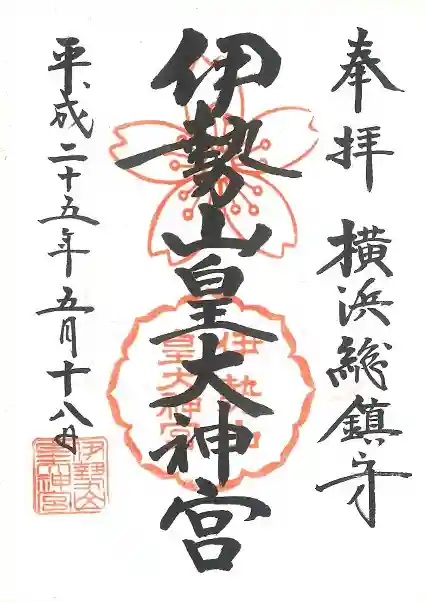 奉拝 横浜総鎮守
伊勢山皇大神宮
平成二十五年五月十八日
伊勢山
皇大神宮
伊勢山
皇大神宮